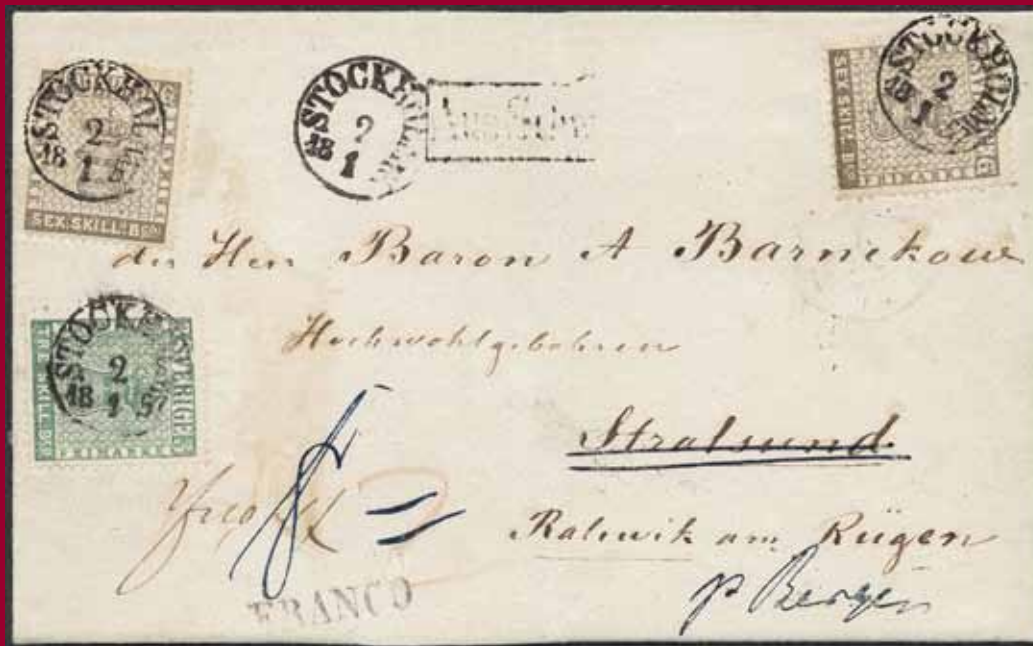 STOCKHOLM
2
18 1 57
FRIMÄRKE
SEX SKILL. Bco
STOCKHOLM
2
18 1
STOCKHOLM
2
18 1
SEX SKILL. B
FRIMÄRKE
Baron A Barnekow
Hochwohlgebohren
STOCKHOLM
2
18 1 57
SVERIGE
TRE SKILL. Bco
FRIMÄRKE
Stralsund
Ralswik am Rügen
p Bergen
FRANCO